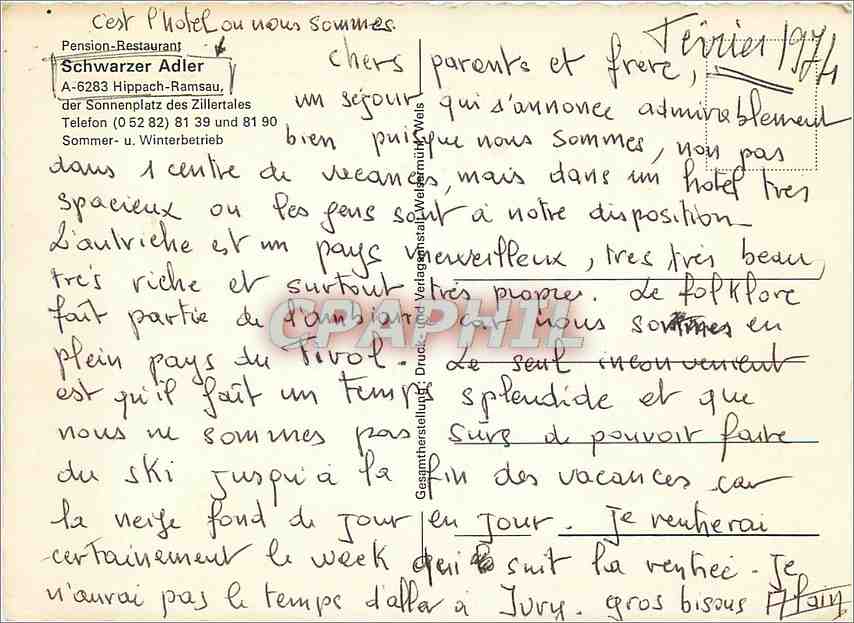 c'est l'hotel ou nous sommes.
Février 1974
Pension-Restaurant
Schwarzer Adler
A-6283 Hippach-Ramsau,
der Sonnenplatz des Zillertales
Telefon (0 52 82) 81 39 und 81 90
Sommer- u. Winterbetrieb
chers parents et frère,
un séjour qui s'annonce admirablement
bien puisque nous sommes, non pas
dans 1 centre de vacances, mais dans un hotel tres
spacieux ou les gens sont à notre disposition
L'autriche est un pays merveilleux, tres très beau,
très riche et surtout très propre. Le folklore
fait partie de l'ambiance car nous sommes en
plein pays du Tirol. Le seul inconvenient
est qu'il fait un temps splendide et que
nous ne sommes pas sûrs de pouvoir faire
du ski jusqu'à la fin des vacances car
la neige fond de jour en jour. Je rentrerai
certainement le week qui suit la rentrée. Je
n'aurai pas le temps d'aller à Ivry. gros bisous Alain
Gesamtherstellung: Druck- und Verlagsanstalt Welsermühl, Wels
CPAPHIL